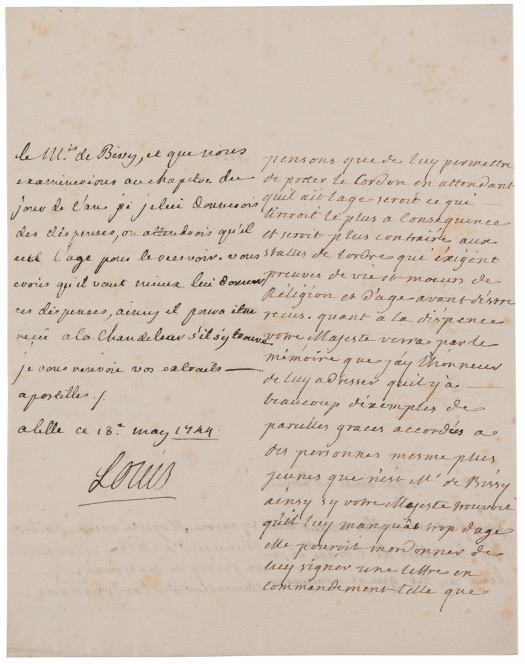 le M.is de Bissy, et que nous
examinerions au chapitre du
jour de l'an si je lui donnerois
des dispenses, ou attendrois qu'il
eut l'age pour le recevoir. vous
crois qu'il vaut mieux lui donner
ces dispenses, ainsy il poura etre
reçu a la Chandeleur s'il s'y trouve.
je vous renvoie vos extraits
apostillés./.
a Lille ce 18.e may 1744.
Louis
pensons que de luy permettre
de porter le Cordon en attendant
qu'il ait lage seroit ce qui
tireroit le plus a consequence
et seroit plus contraire aux
statuts de lordre qui exigent
preuves de vie et moeurs de
Réligion et d'age avant d'estre
recus. quant a la dispence
votre Majesté verra par le
mémoire que jay lhonneur
de luy adresser quil y a
beaucoup d'exemples de
pareilles graces accordées a
des personnes mesme plus
jeunes que n'est M.r de Bissy
ainsy sy votre Majesté trouvoit
qu'il luy manquât trop d'age
elle pouroit m'ordonner de
luy signer une lettre en
commandement telle que